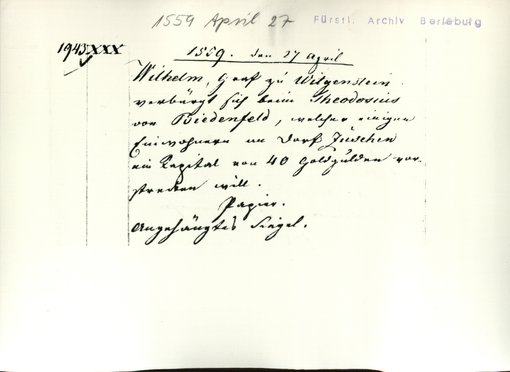 1559 April 27
Fürstl. Archiv Berleburg
1945 XXX
1559. den 27 April
Wilhelm, Graf zu Witgenstein
verbürgt sich beim Theodosius
von Biedenfeld, welcher einigen
Einwohnern im Dorf Züschen
ein Kapital von 40 Goldgulden vor-
strecken will.
Papier.
Angehängtes Siegel.